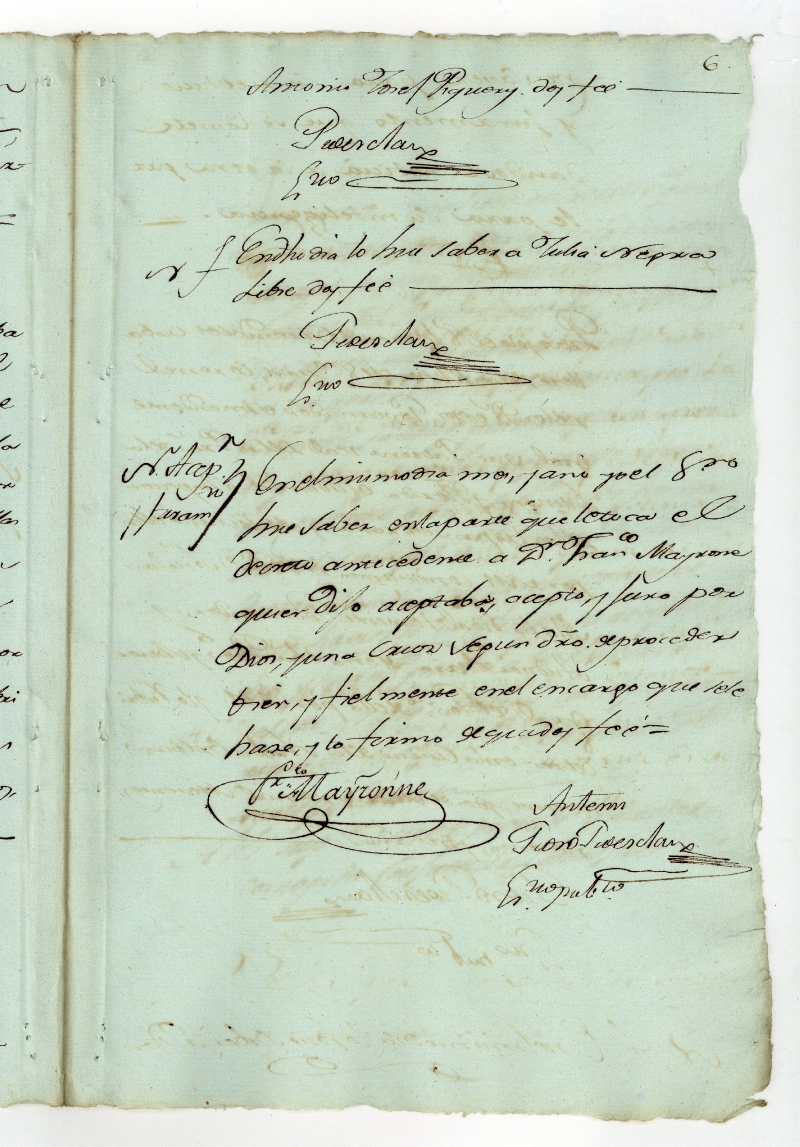 6
Antonio Josef Piguery. doy feé
Pedesclaux
Esno
N/ En dho dia lo hise saber a Julia Negra
Libre doy feé
Pedesclaux
Esno.
Nn. Acepn
y Juramto
En el mismo dia mes, y año yo el Ssno
hise saber en la parte que le toca el
decreto antecedente a Dn Franco Mayrone
quien Dijo aceptaba, acepto, y Juro por
Dios, y una Cruz segun dro. de proceder
bien, y fielmente en el encargo que se le
hase, y lo firmo de que doy feé =
Mayronne
Antemi
Pedro Pedesclaux
Esno publco